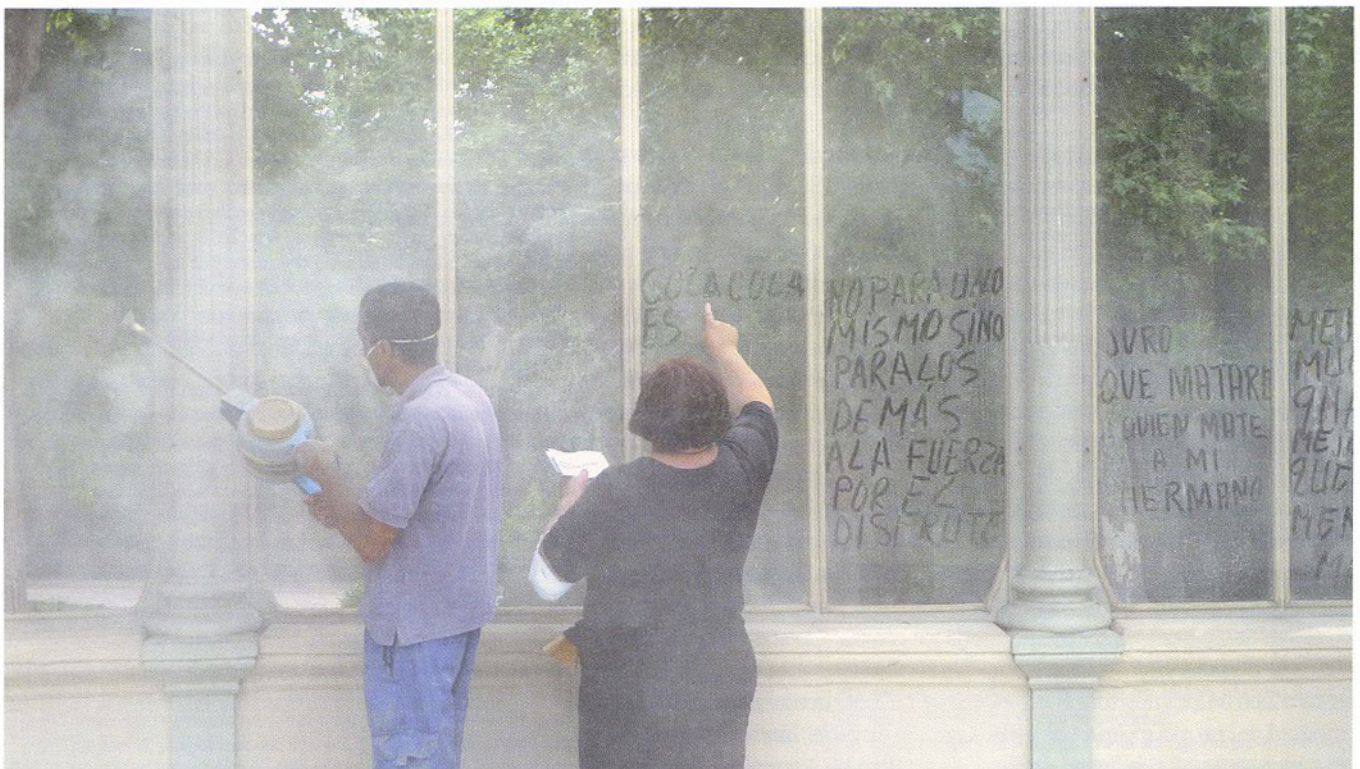 COCA COLA
ES
NO PARA UNO
MISMO SINO
PARA LOS
DEMÁS
A LA FUERZA
POR EL
DISFRUTE
JURO
QUE MATARE
A QUIEN MATE
A MI
HERMANO